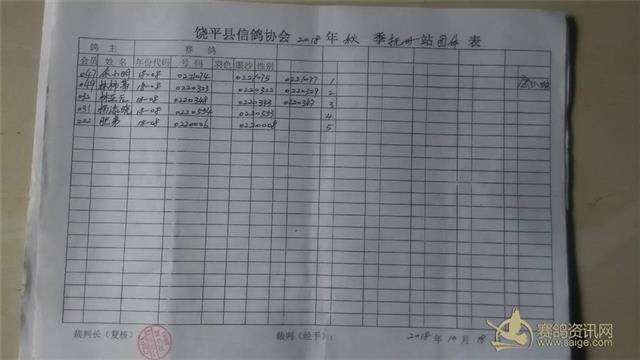 饶平县信鸽协会 2018 年 秋 季 抚州一站团体 表
鸽 主 赛 鸽
会员 姓名 年份代码 号 码 羽色 眼沙 性别
047 余小明 18-08 0221074 0221075 0221077 1
049 18-08 0220323 0220322 0220329 2
032 18-08 0220348 0220383 0220387 3
031 18-08 0220554 0220553 4
222 肥弟 18-08 0220006 0220008 5
裁判长（复核）： 裁判（经手）： 2018 年 10 月 18
赛鸽资讯网
www.saige.com